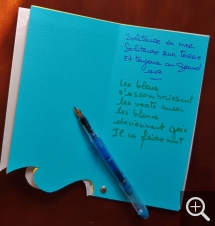 Solitaire en mer
Solitaire sur terre
Et toujours au grand
air
Les bleus
s'assombrissent
les verts aussi
les blancs
deviennent gris
Il va faire nuit